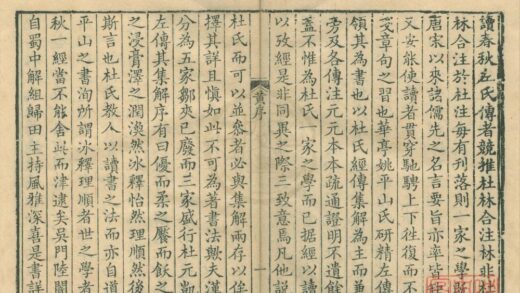 讀春秋左氏傳者競推杜林合注林非杜
林合注於杜注每有刊落則一家之學既
唐宋以來諸儒先之名言要旨亦率皆
又安能使讀者貫穿馳騁上下往復而不
章句之習也華亭姚平山氏研精左傳
領其為書也以杜氏經傳集解為主而兼
旁及各傳注元元本本疏通證明不遺餘
蓋不惟為杜氏一家之學而已據經以讀
以攷經是非同異之際三致意焉凡他說
黃序 一
杜氏而可以並參者必與集解兩存以俟
擇其詳且慎如此不可為著書法與夫漢
分為五家鄒夾已廢而三家盛行杜元凱
左傳其集解序有曰優而柔之饜而飫之
之浸膏澤之潤渙然冰釋怡然理順然後
斯言也杜氏教人以讀書之法而亦自道
平山之書洵所謂冰釋理順者世之學者
秋一經當不能舍此而津逮矣吳門陸闇
自蜀中解組歸田主持風雅深喜是書詳